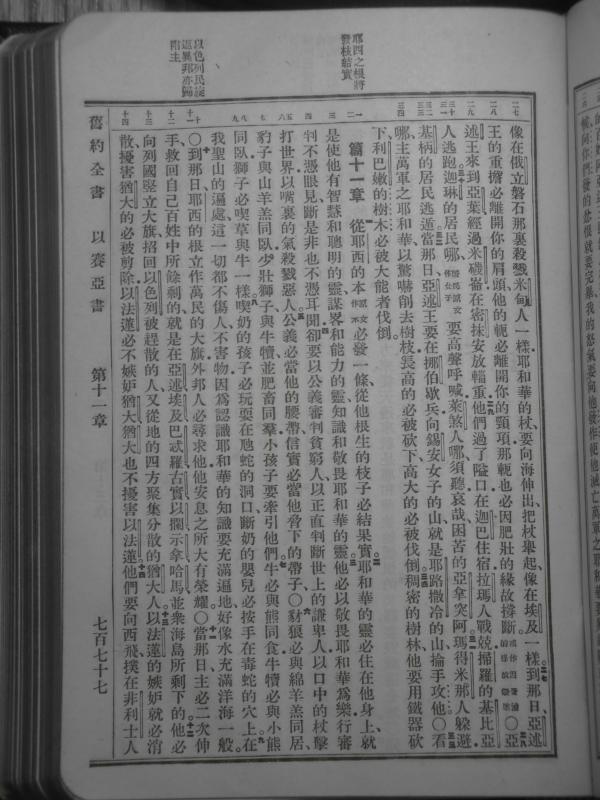 耶西之根將
發枝結實
以色列民旋
返異邦亦歸
附主
像在俄立磐石那裏殺戮米甸人一樣耶和華的杖要向海伸出把杖舉起像在埃及一樣到那日亞述
王的重擔必離開你的肩頭他的軛必離開你的頸項那軛也必因肥壯的緣故撐斷〇亞
述王來到亞葉經過米磯崙在密抹安放輜重他們過了隘口在迦巴住宿拉瑪人戰兢掃羅的基比亞
人逃跑迦琳的居民哪要高聲呼喊萊煞人哪須聽哀哉困苦的亞拿突阿瑪得米那人躲避
基柄的居民逃遁當那日亞述王要在挪伯歇兵向錫安女子的山就是耶路撒冷的山掄手攻他〇看
哪主萬軍之耶和華以驚嚇削去樹枝長高的必被砍下高大的必被伐倒稠密的樹林他要用鐵器砍
下利巴嫩的樹木必被大能者伐倒
第十一章 從耶西的本必發一條從他根生的枝子必結果實耶和華的靈必住在他身上就
是使他有智慧和聰明的靈謀畧和能力的靈知識和敬畏耶和華的靈他必以敬畏耶和華爲樂行審
判不憑眼見斷是非也不憑耳聞卻要以公義審判貧窮人以正直判斷世上的謙卑人以口中的杖擊
打世界以嘴裏的氣殺戮惡人公義必當他的腰帶信實必當他脅下的帶子〇豺狼必與綿羊羔同居
豹子與山羊羔同臥少壯獅子與牛犢並肥畜同羣小孩子要牽引他們牛必與熊同食牛犢必與小熊
同臥獅子必喫草與牛一樣喫奶的孩子必玩耍在虺蛇的洞口斷奶的嬰兒必按手在毒蛇的穴上在
我聖山的遍處這一切都不傷人不害物因爲認識耶和華的知識要充滿遍地好像水充滿洋海一般
〇到那日耶西的根立作萬民的大旗外邦人必尋求他他安息之所大有榮耀〇當那日主必二次伸
手救回自己百姓中所餘剩的就是在亞述埃及巴忒羅古實以攔示拿哈馬並衆海島所剩下的他必
向列國豎立大旗招回以色列被趕散的人又從地的四方聚集分散的猶大人以法蓮的嫉妒就必消
散擾害猶大的必被剪除以法蓮必不嫉妒猶大猶大也不擾害以法蓮他們要向西飛撲在非利士人
舊約全書 以賽亞書 第十一章 七百七十七